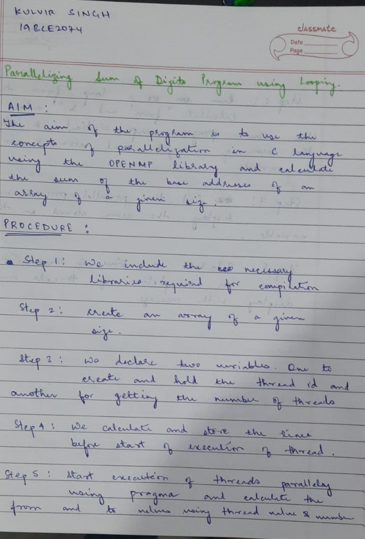 KULVIR SINGH
19BCE2074
classmate
Date
Page
Parallelizing Sum of Digits Program using Looping.
AIM :
The aim of the program is to use the
concepts of parallelization in C language
using the OPENMP library and calculate
the sum of the base addresses of an
array of a given size.
PROCEDURE :
Step 1 : We include the necessary
libraries required for compilation
Step 2 : create an array of a given
size.
Step 3 : We declare two variables. One to
create and hold the thread id and
another for getting the number of threads
Step 4 : We calculate and store the time
before start of execution of thread.
Step 5 : Start execution of threads parallely
using pragma and calculate the
from and to values using thread value &